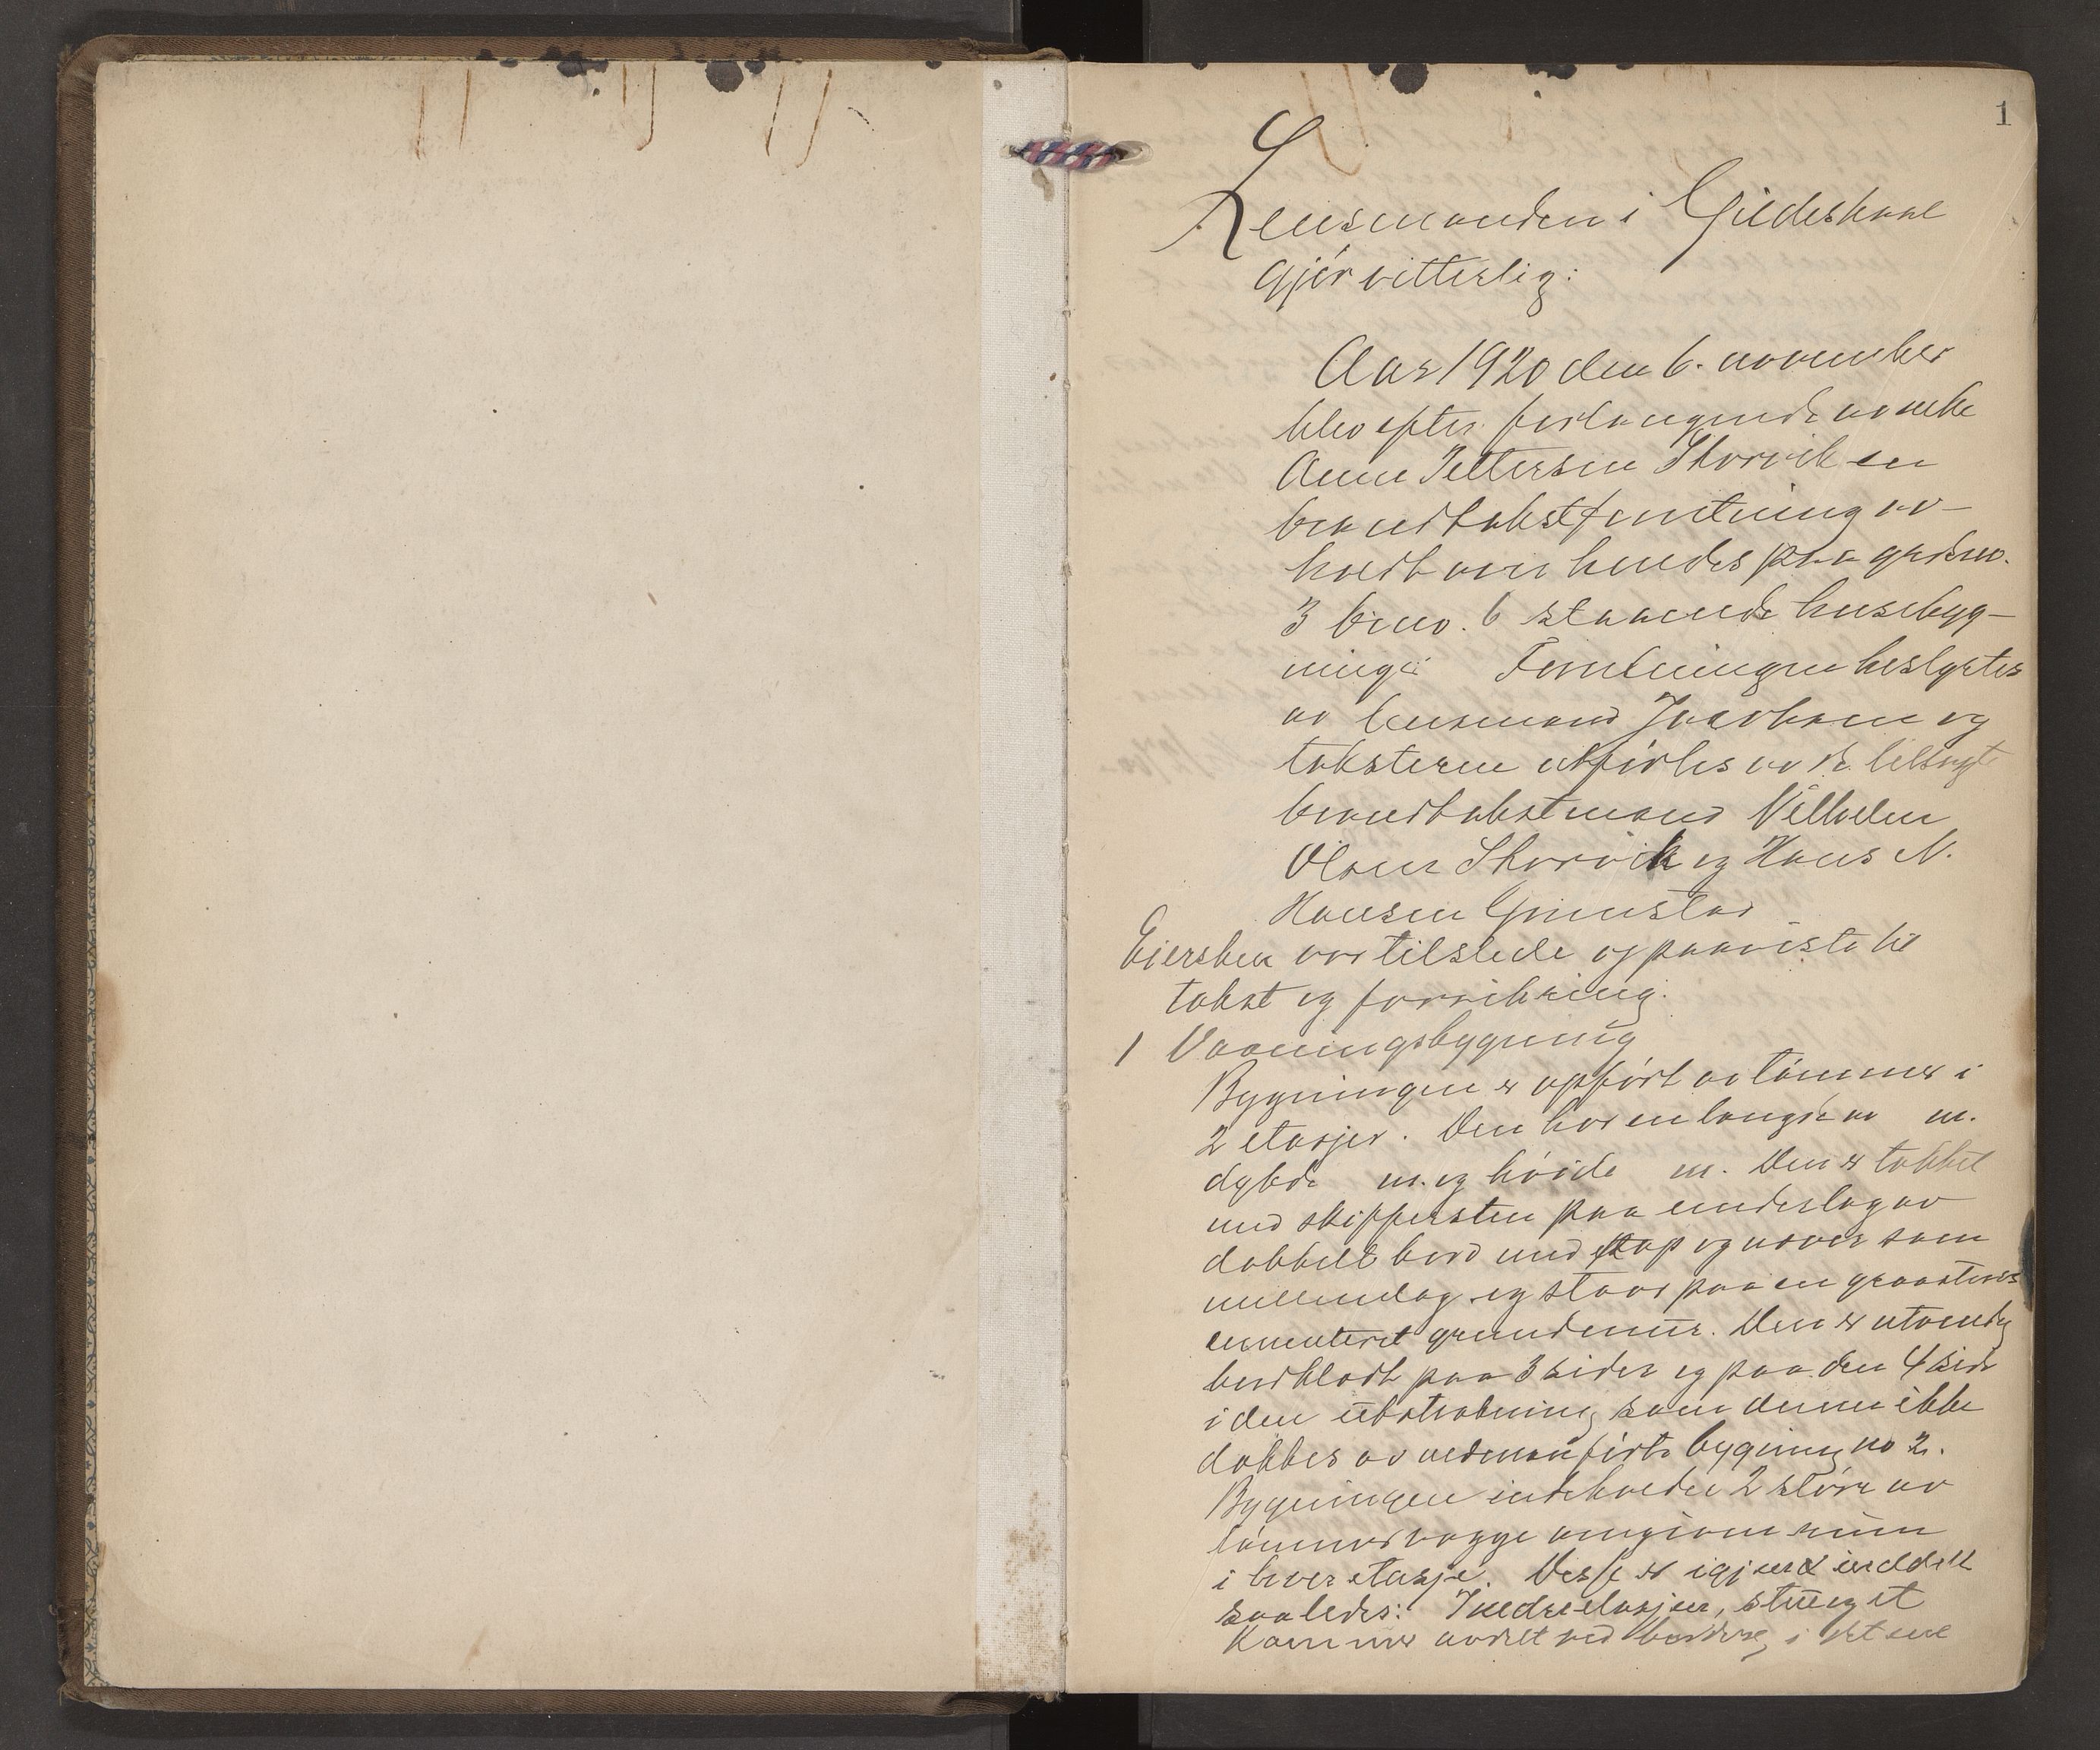 1
Lensmanden i Gildeskaal
gjör vitterlig:
Aar 1920 den 6. november
blev efter forlangende av enke
Anne Pettersen Storvik en
brandtakstforretning av-
holdt over hendes paa gaardsno.
3 brno. 6 staaende husebyg-
ninger. Forretningen bestyrtes
av lensmand Jacobsen og
taksterne utførtes av de tilsagte
brandtakstmænd Vilhelm
Olsen Storvik og Hans N.
Hansen Grimstad
Eiersken var tilstede og paaviste til
takst og forsikring.
1 Vaaningsbygning
Bygningen er opført av tømmer i
2 etasjer. Den har en længde av m.
dybde m. og høide m. Den er tækket
med skiffersten paa underlag av
dobbelt bord med papp og næver som
mellemlag og staar paa en graastens
cementeret grundmur. Den er utvendig
bordklædt paa 3 sider og paa den 4 side
i den utstrækning som denne ikke
dækkes av nedenanførte bygning no 2.
Bygningen indeholder 2 større av
tømmervægge omgivne rum
i hver etasje. Disse er igjen inddelt
saaledes: I nedre etasjen, stue og et
Kammer avdelt ved bordvæg, i det ene